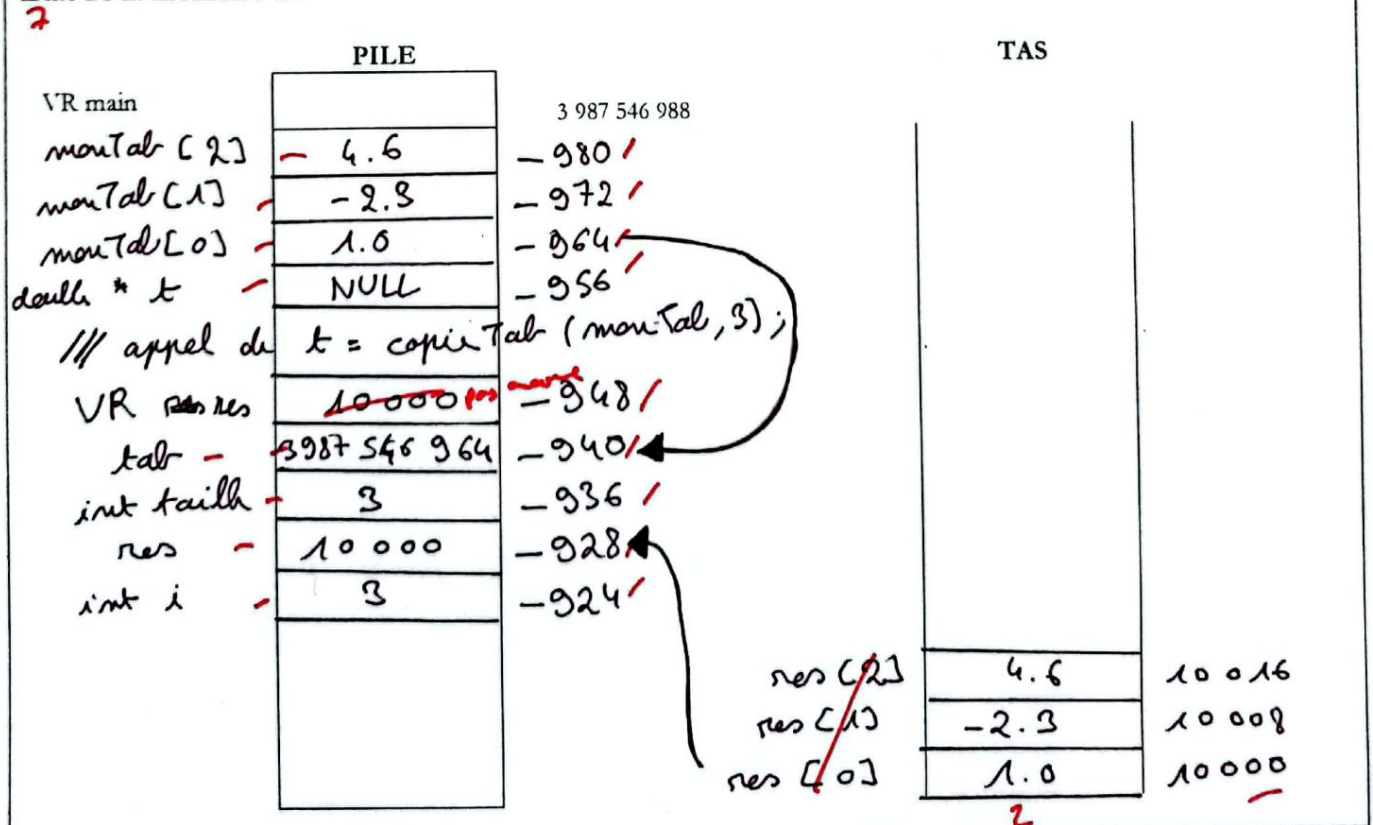 7
PILE
TAS
VR main 3 987 546 988
monTab [2] 4.6 - 980
monTab [1] -2.3 - 972
monTab [0] 1.0 - 964
double * t NULL - 956
/// appel de t = copieTab (monTab, 3);
VR res 10000 pas encore - 948
tab 3987 546 964 - 940
int taille 3 - 936
res 10 000 - 928
int i 3 - 924
res [2] 4.6 10 016
res [1] -2.3 10 008
res [0] 1.0 10 000
2